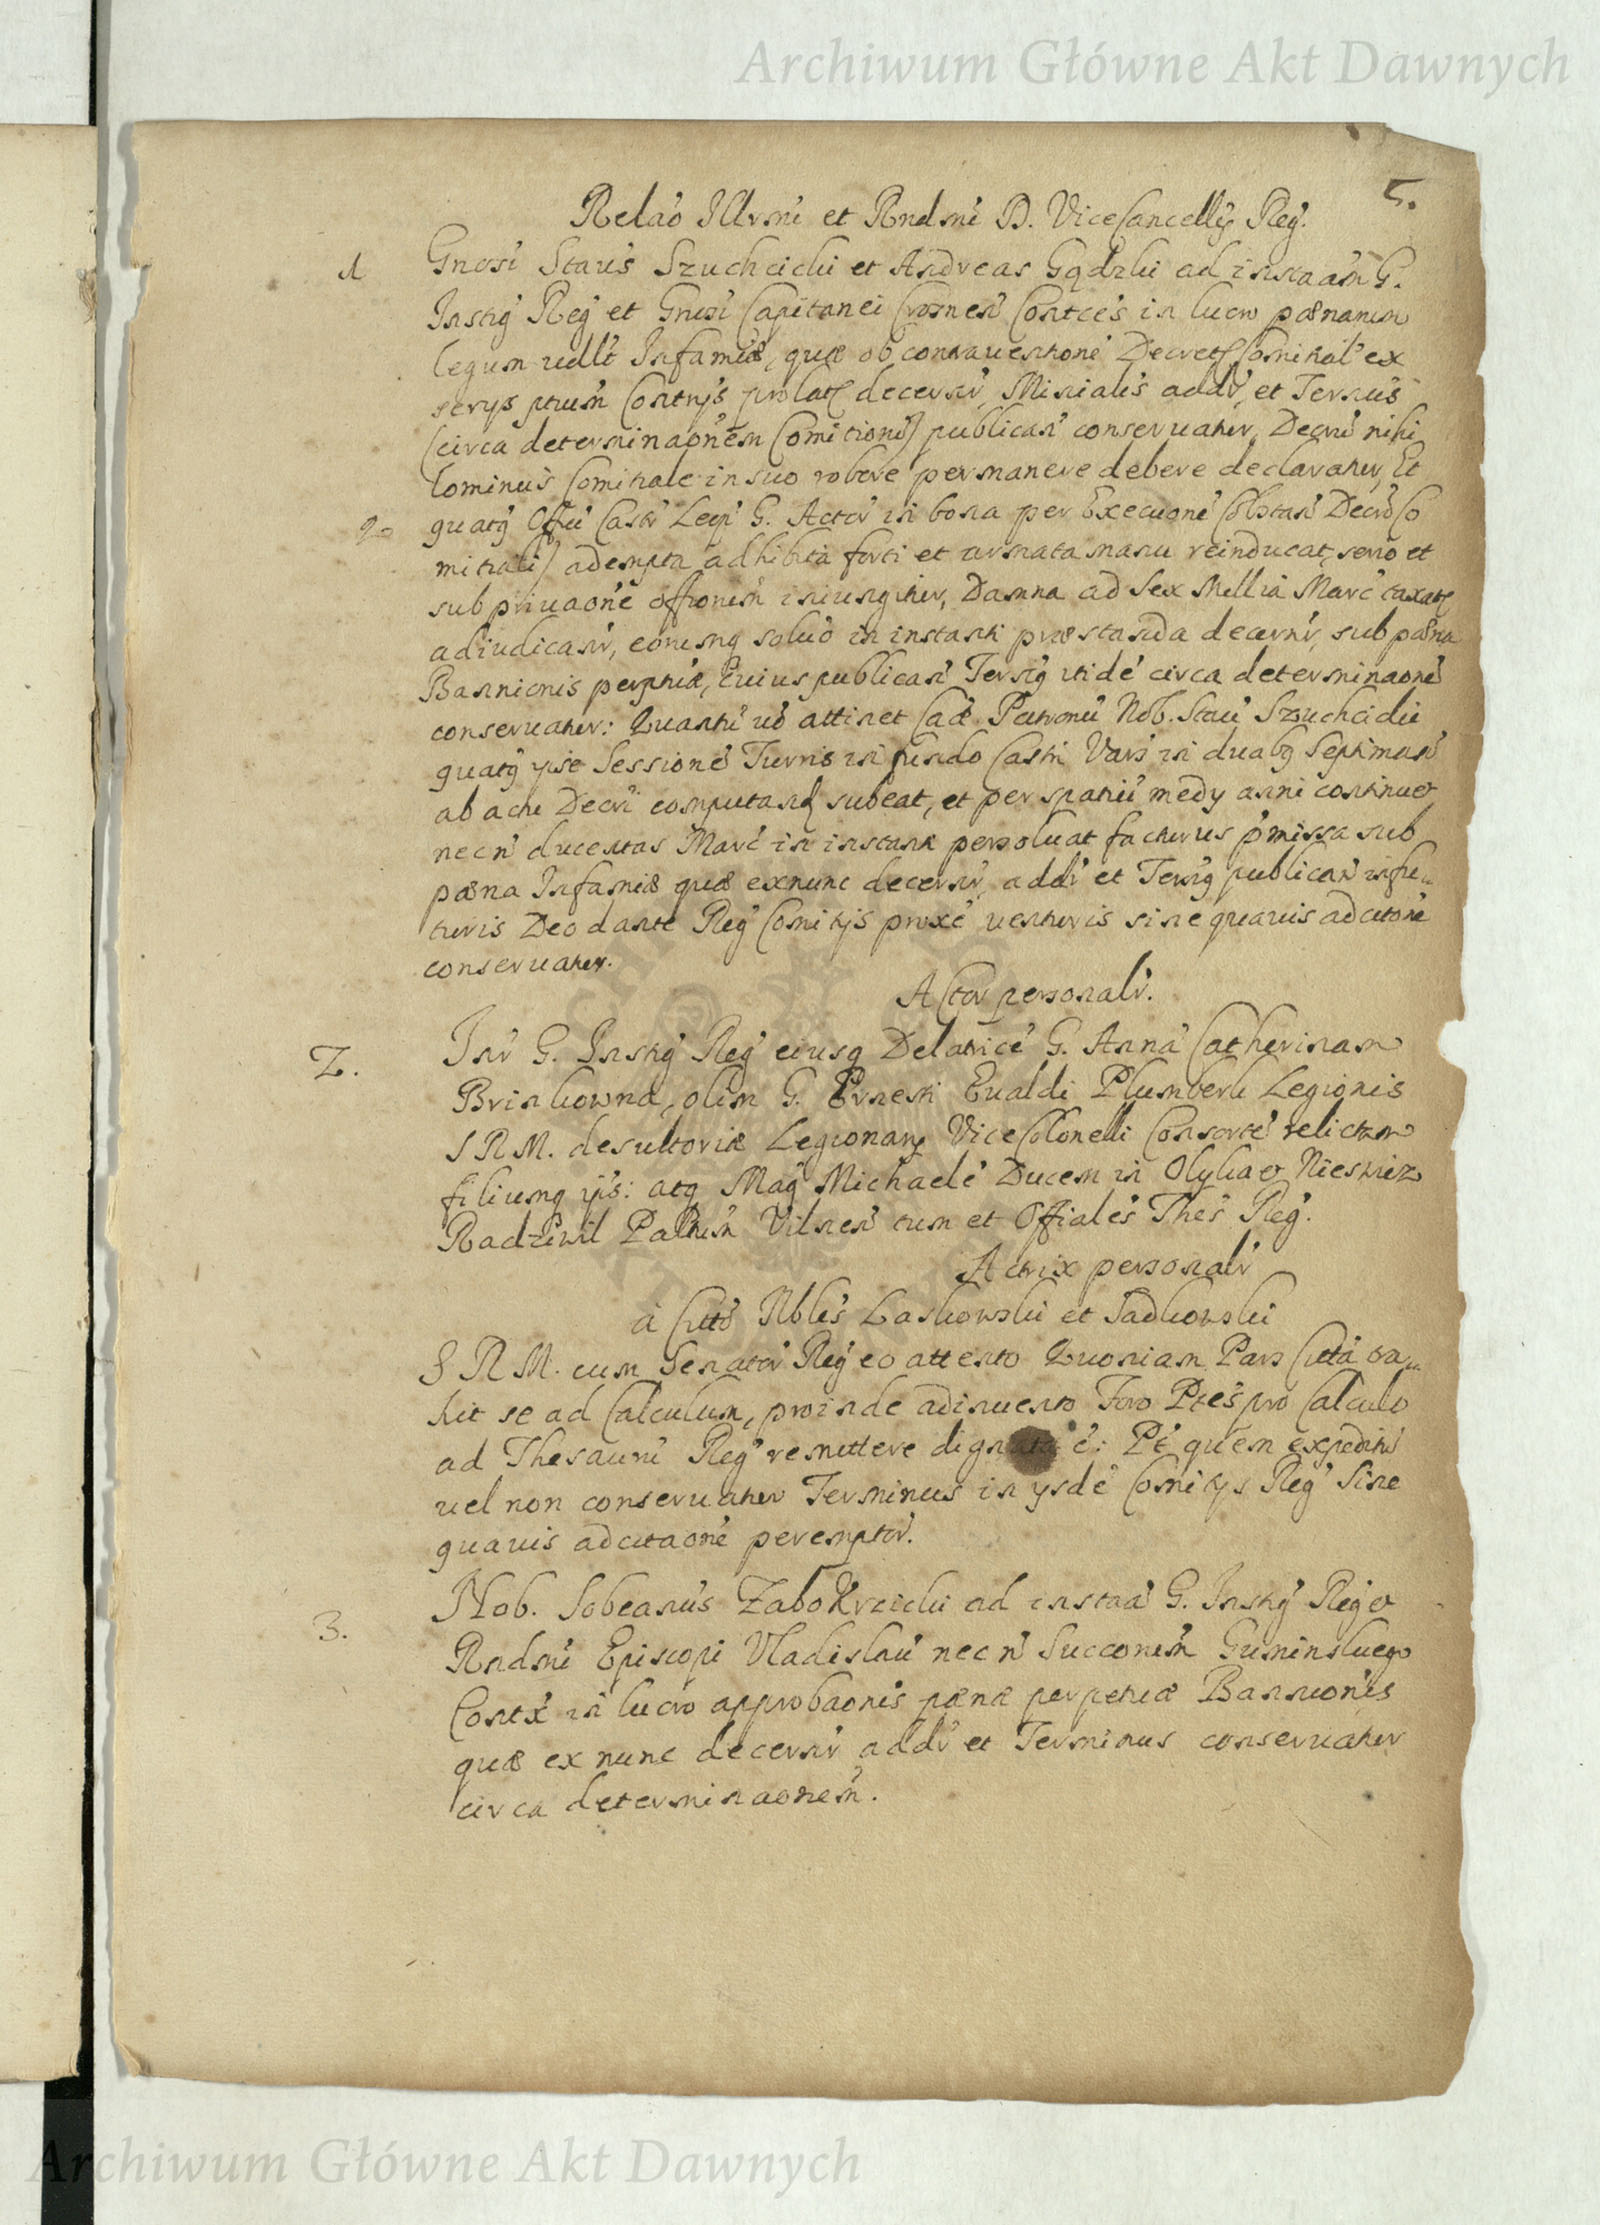 Archiwum Główne Akt Dawnych
5.
Relaõ Illrmi et Rndmi D. ViceCancellÿ Reg̃.
1 Gnosi Staus Szuchcicki et Andreas Gądzki ad instaam G.
Instig Reg et Gnosi Capitanei Crosnen Contces in lucro pænarum
legum uidlt Infamiæ, quæ ob contrauentione Decreti Comitial ex
serys ptium Contrys prolati decernr, Minialis addr, et Ternus
(circa determinaonem Comitioni) publican conseruatur, Decru nihi
lominus Comitiale in suo robore permanere debere declaratur, Et
2o quatg Offiu Castr Leop G. Actor in bona per Execuone Decro Co
mitiali adempta adhibita forti et armata manu reinducat, serio et
sub priuaone offionum iniungitur, Damna ad Sex Millia Marc taxat
adiudicanr, eorumq soluo in instanti præstanda decernr, sub pæna
Bannionis perptuæ, Cuius publican Termg itide circa determinaone
conseruatur: Quantu uo attinet Patronu Nob. Stau Szuchcicki
quatg ipse Sessione Turris in fundo Castri Vars in duabg Septiman
ab actu Decri computand subeat, et per spatiu medy anni continuo
nec n ducentas Marc in instanti persoluat facturus pmissa sub
pæna Infamiæ quæ exnunc decernr addr et Termg publican in fu„
turis Deo dante Reg Comitys proxe uenturis sine quauis adcitone
conseruatur.
Actor personalr.
2. Inr G. Instig Reg eiusq Delatrice G. Anna Catherinam
Brinkowna, olim G. Ernesti Eualdi Plumberk Legionis
S R M. desultoriæ Legionary ViceColonelli Consorte relictam
filiumq ips: atq Mag Michaele Ducem in Olyka et Nieswiez
Radziwil Palnum Vilnen tum et Offiales Thes Reg.
Actrix personalr
à Citto Nbles Laskowski et Sadkowski
S R M. cum Senator Reg eo attento Quoniam Pars Citta tra„
hit se ad Calculum, proinde adinuento Foro Ptes pro Calculo
ad Thesauru Reg remittere dignata e: Pt quem expeditu
uel non conseruatur Terminus in ysde Comitys Reg Sine
quauis adcitaone peremptor.
3. Nob. Sobeanus Zabokrzicki ad instaa G. Instig Reg et
Rndmi Episcopi Vladislau nec n Succorum Guminskiego
Contx in lucro approbaonis pænæ perpetuæ Bannionis
quæ ex nunc decernr addr et Terminus conseruatur
circa determinaonem.
Archiwum Główne Akt Dawnych